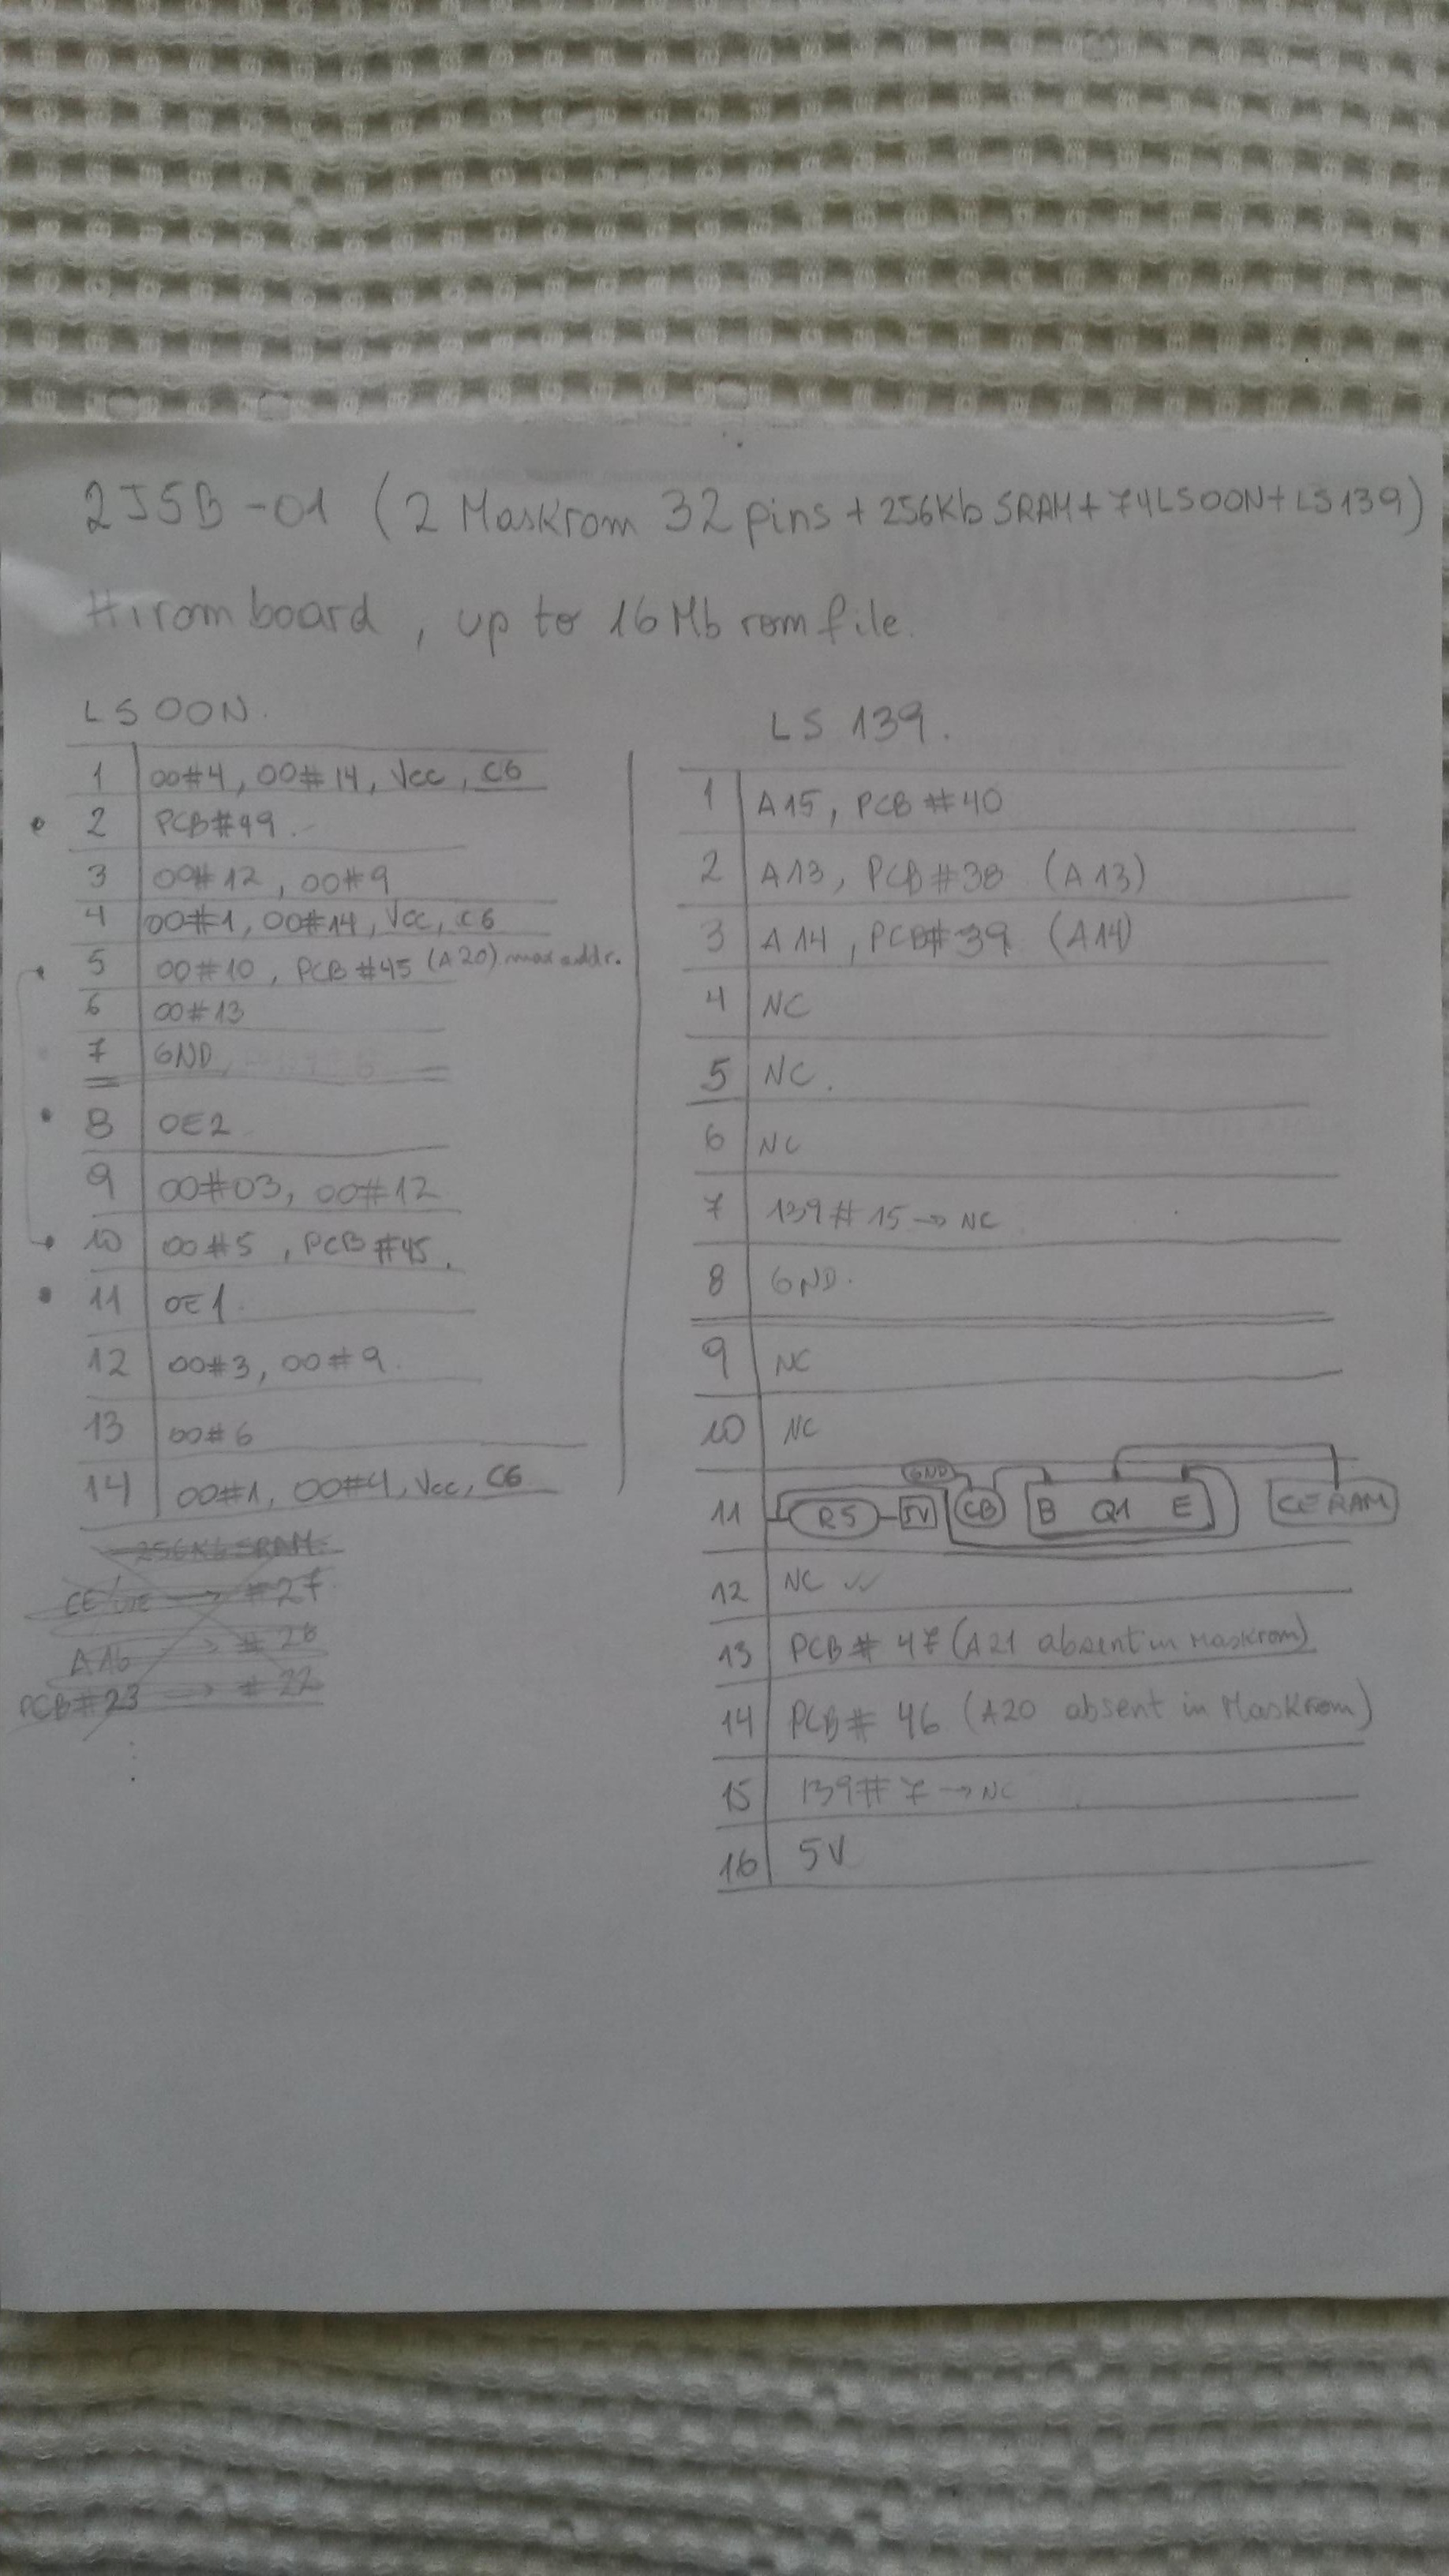 2J5B-01 (2 Maskrom 32 pins + 256Kb SRAM + 74LS00N + LS139)
Hirom board, up to 16 Mb rom file.
LS 00N.
1 00#4, 00#14, Vcc, C6
2 PCB#49.
3 00#12, 00#9
4 00#1, 00#14, Vcc, C6
5 00#10, PCB#45 (A20) max addr.
6 00#13
7 GND
8 OE2
9 00#03, 00#12
10 00#5, PCB#45.
11 OE1.
12 00#3, 00#9.
13 00#6
14 00#1, 00#4, Vcc, C6
256Kb SRAM
→ #27
A16 → #28
PCB#23 → #22
LS 139.
1 A15, PCB#40
2 A13, PCB#38 (A13)
3 A14, PCB#39 (A14)
4 NC
5 NC.
6 NC
7 139#15 → NC
8 GND.
9 NC
10 NC
GND
11 R5 5V CB B Q1 E CE RAM
12 NC ✓✓
13 PCB# 47 (A21 absent in Maskrom)
14 PCB# 46 (A20 absent in Maskrom)
15 139#7 → NC
16 5V